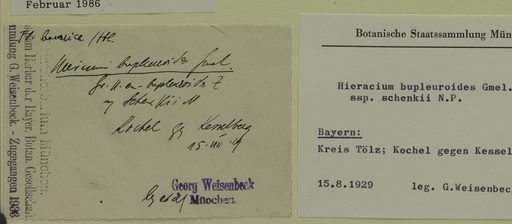 Februar 1986
Fl. bavarica
Hieracium bupleuroides Gmel.
Gr. bupleuroides
Schenkii
Kochel gg Kesselberg
15. VIII.
Georg Weisenbeck
München.
Herbar der Bayer. Botan. Gesellschaft
mmlung G. Weisenbeck - Zugegangen 1936
Botanische Staatssammlung Mün
Hieracium bupleuroides Gmel.
ssp. schenkii N.P.
Bayern:
Kreis Tölz; Kochel gegen Kessel
15.8.1929 leg. G.Weisenbec